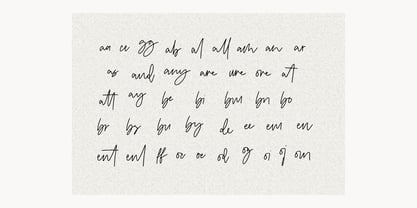 aa ce gg ab al all am an ar
as and any are ure ore at
att ay be bi bm bn bo
br bs bu by de ee em en
ent enl ff oc oe od og oi oj om